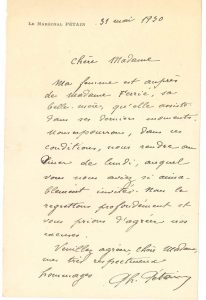 LE MARÉCHAL PÉTAIN
31 mai 1930
Chère Madame
Ma femme est auprès
de madame Ferrié, sa
belle-mère, qu'elle assiste
dans ses derniers moments.
nous ne pourrons, dans ces
conditions, nous rendre au
diner de lundi, auquel
vous nous aviez si aima-
blement invités. Nous le
regrettons profondément et
vous prions d'agréer nos
excuses.
Veuillez agréer, chère Madame,
mes très respectueux
hommages
Ph. Pétain